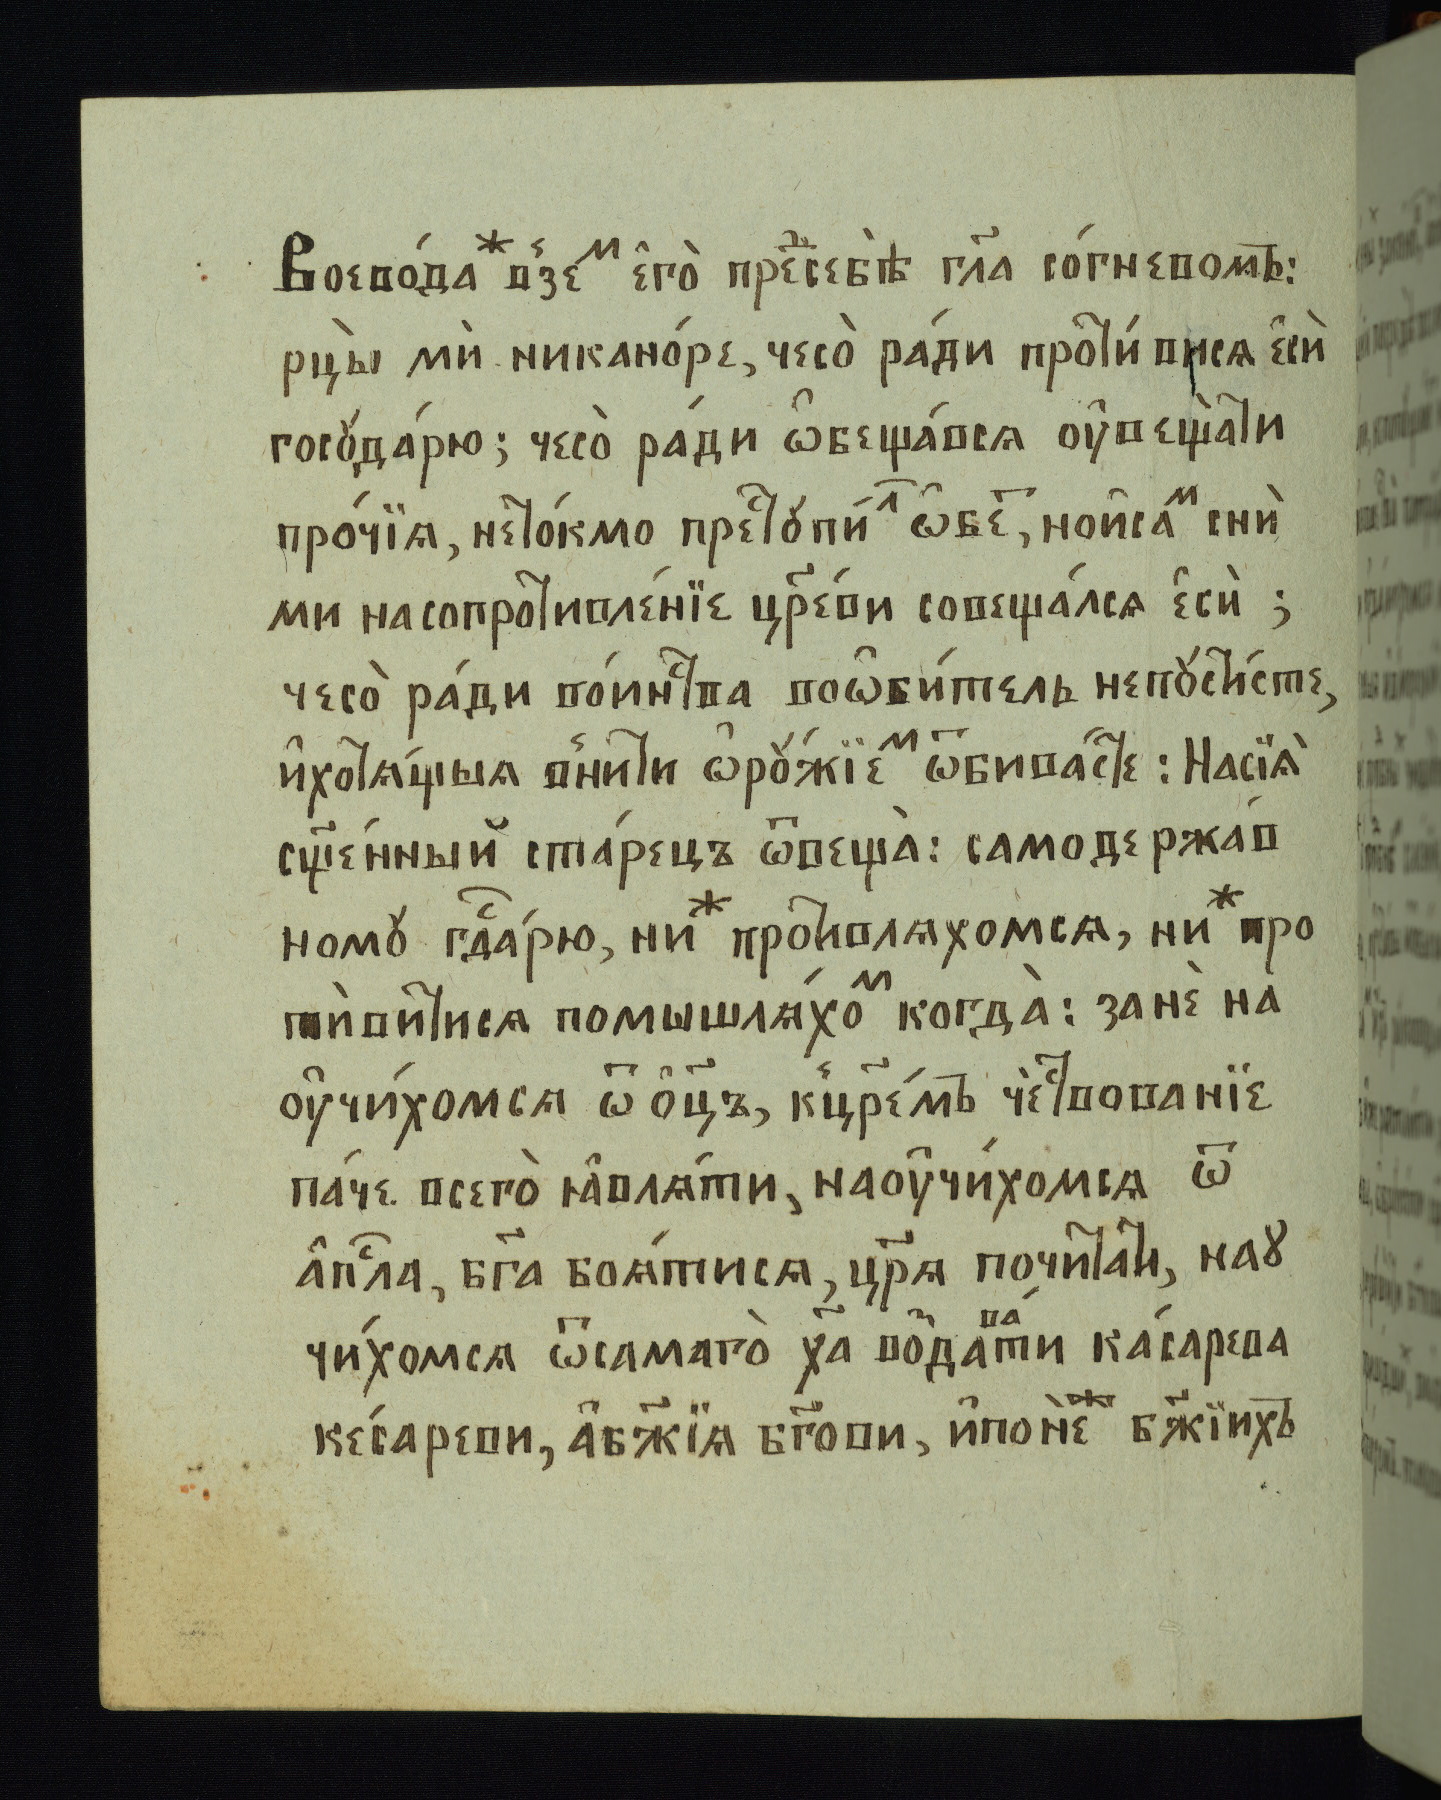 Воево́да же взе́м є҆го̀ пре́дсебѣ̀ гл҃а со́гневомъ:
рцы̀ мѝ никано́ре, чесо̀ ра́ди проти́вися є҆сѝ
госꙋда́рю; чесо̀ ра́ди ѡ҆беща́вся оу҆вещати
про́чїѧ, нето́кмо престꙋпи́л ѡ҆бе́т, нои҆са́м снѝ
ми насопротивле́нїе цр҃е́ви совеща́лся є҆сѝ;
чесо̀ ра́ди во́инства воѡ҆би́тель непꙋсти́сте,
и҆хотѧ́щыя вни́ти ѡ҆рꙋ́жїем ѿбива́сте: Насїѧ̀
сщ҃е́нный ста́рецъ ѿвеща̀: самодержа́в
номꙋ гдс҃а́рю, ниж противлѧхомсѧ, ниж про
ти̇̀витисѧ помышлѧ́хом когда̀: занѐ на
оу҆чи́хомсѧ ѿ ѻ҆ц҃ъ, кцр҃е́мъ че́ствованїе
па́че всего̀ ꙗ҆влѧ́ти, наоу҆чи́хомсѧ ѿ
а҆пс҃ла, бг҃а боѧ́тисѧ, цр҃ѧ почита́ти, наꙋ
чи́хомсѧ ѿсамаго̀ хр҃а воздава́ти ка́сарева
ке́сареви, а҆бж҃їѧ бг҃ови, и҆поне́ж бж҃їихъ